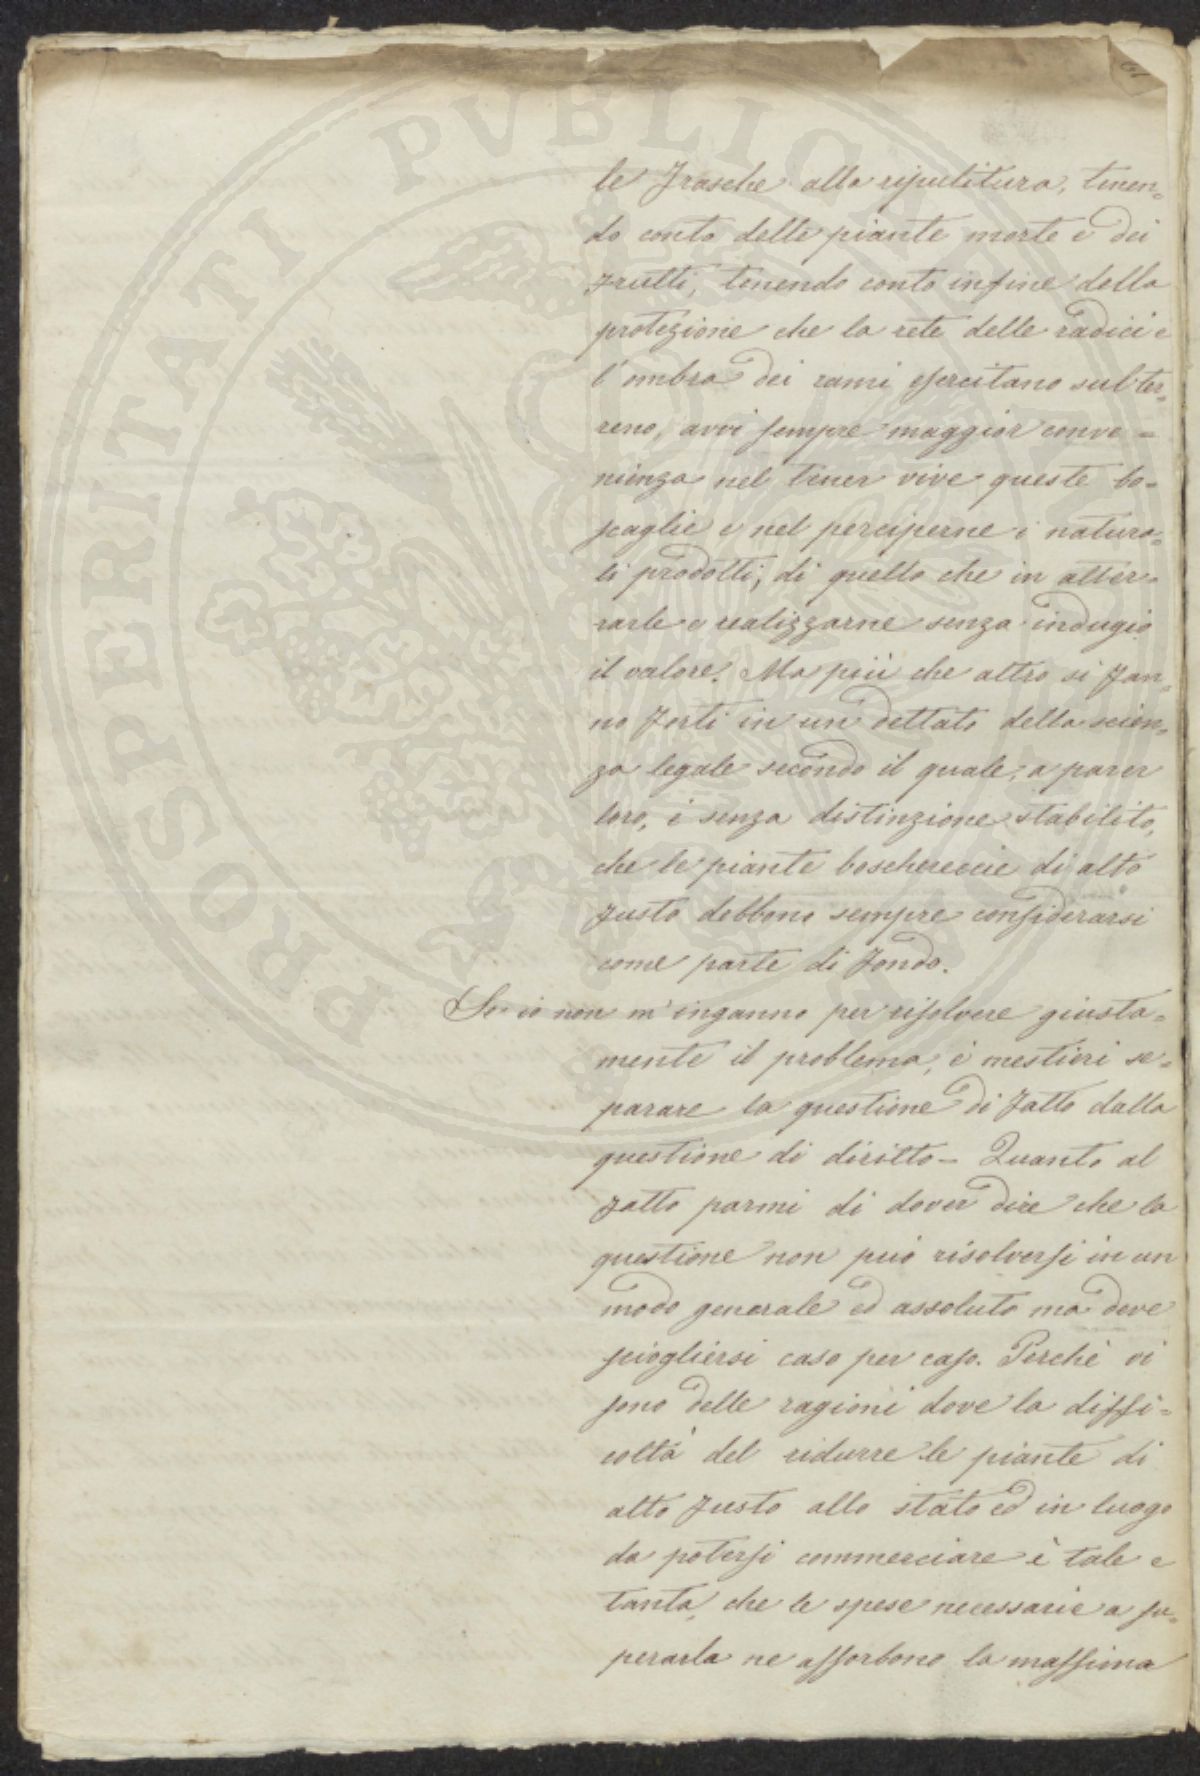 le frasche alla ripulitura, tenen=
do conto delle piante morte e dei
frutti, tenendo conto infine della
protezione che la rete delle radici e
l'ombra dei rami esercitano sul ter=
reno, avvi sempre maggior conve=
nienza nel tener vive queste bo=
scaglie e nel perciperne i natura=
li prodotti, di quello che in atter=
rarle e realizzarne senza indugio
il valore. Ma più che altro si fan=
no forti in un dettato della scien=
za legale secondo il quale, a parer
loro, è senza distinzione stabilito,
che le piante boschereccie di alto
fusto debbono sempre considerarsi
come parte di fondo.
Se io non m'inganno per risolvere giusta=
mente il problema, è mestieri se=
parare la questione di fatto dalla
questione di diritto= Quanto al
fatto parmi di dover dire che la
questione non può risolversi in un
modo generale ed assoluto ma deve
sciogliersi caso per caso. Perchè vi
sono delle ragioni dove la diffi=
coltà del ridurre le piante di
alto fusto allo stato ed in luogo
da potersi commerciare è tale e
tanta, che le spese necessarie a su=
perarla ne assorbono la massima
PROSPERITATI PVBLICAE